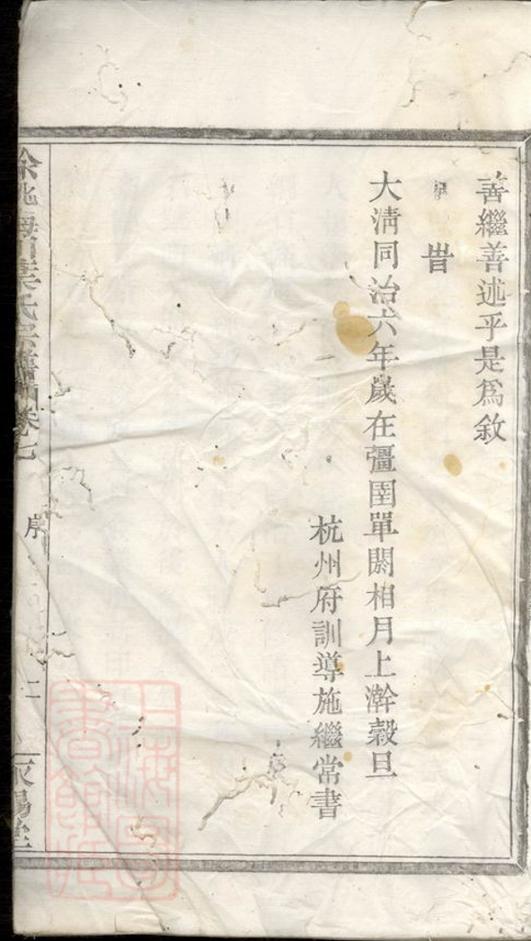 善繼善述乎是爲敘
旹
大淸同治六年歲在彊圉單閼相月上澣穀旦
杭州府訓導施繼常書
氏宗譜
卷七
序
二